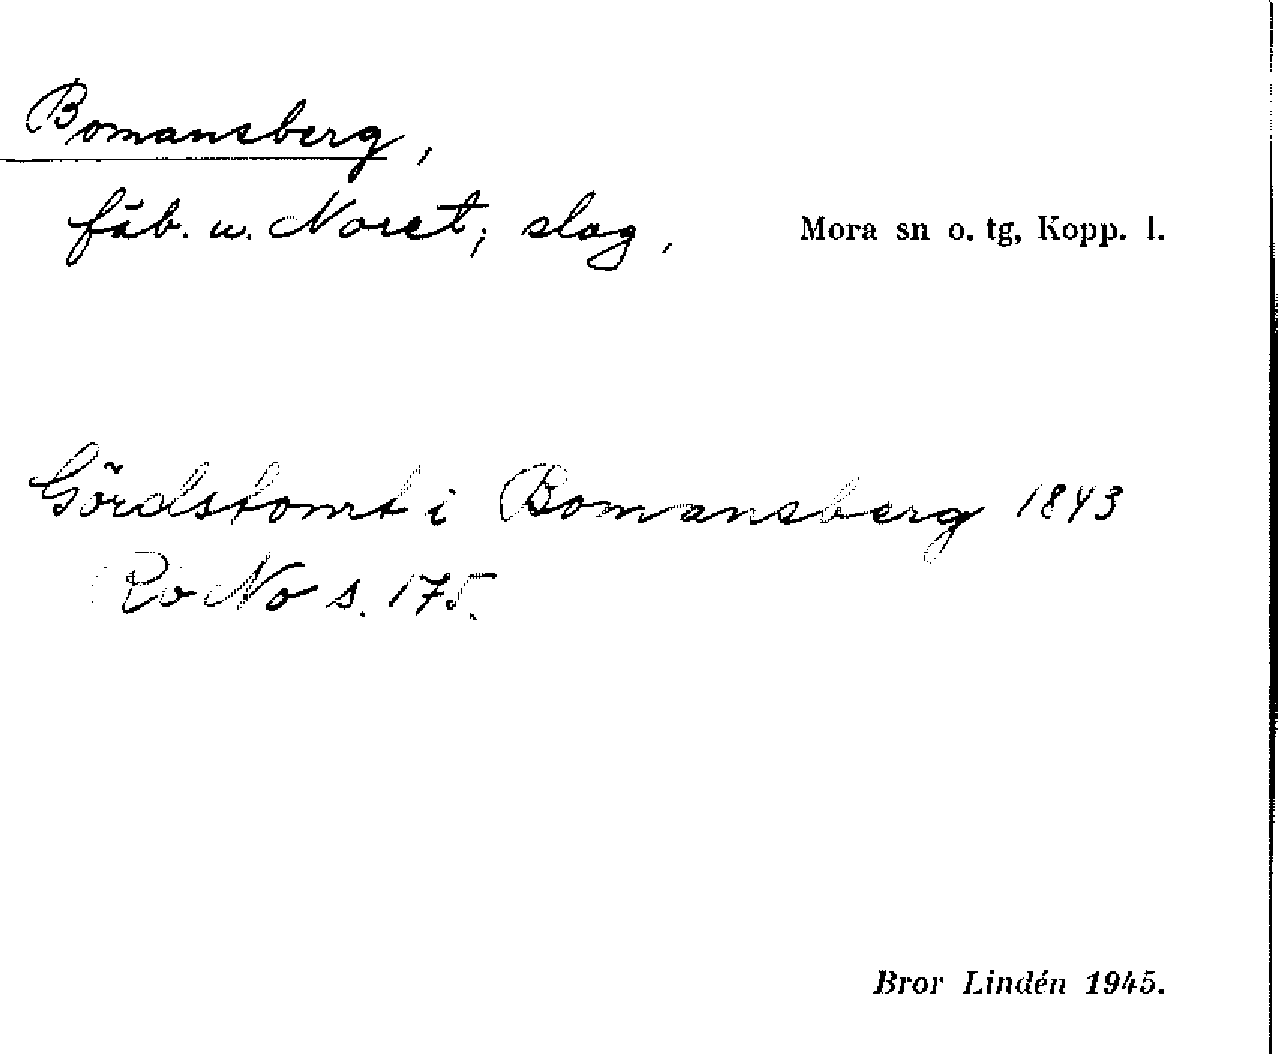 Bomansberg,
fäb. u. Noret, slog, Mora sn o. tg, Kopp. l.
Gördstomt i Bomansberg 1843
Ro No s. 175.
Bror Lindén 1945.